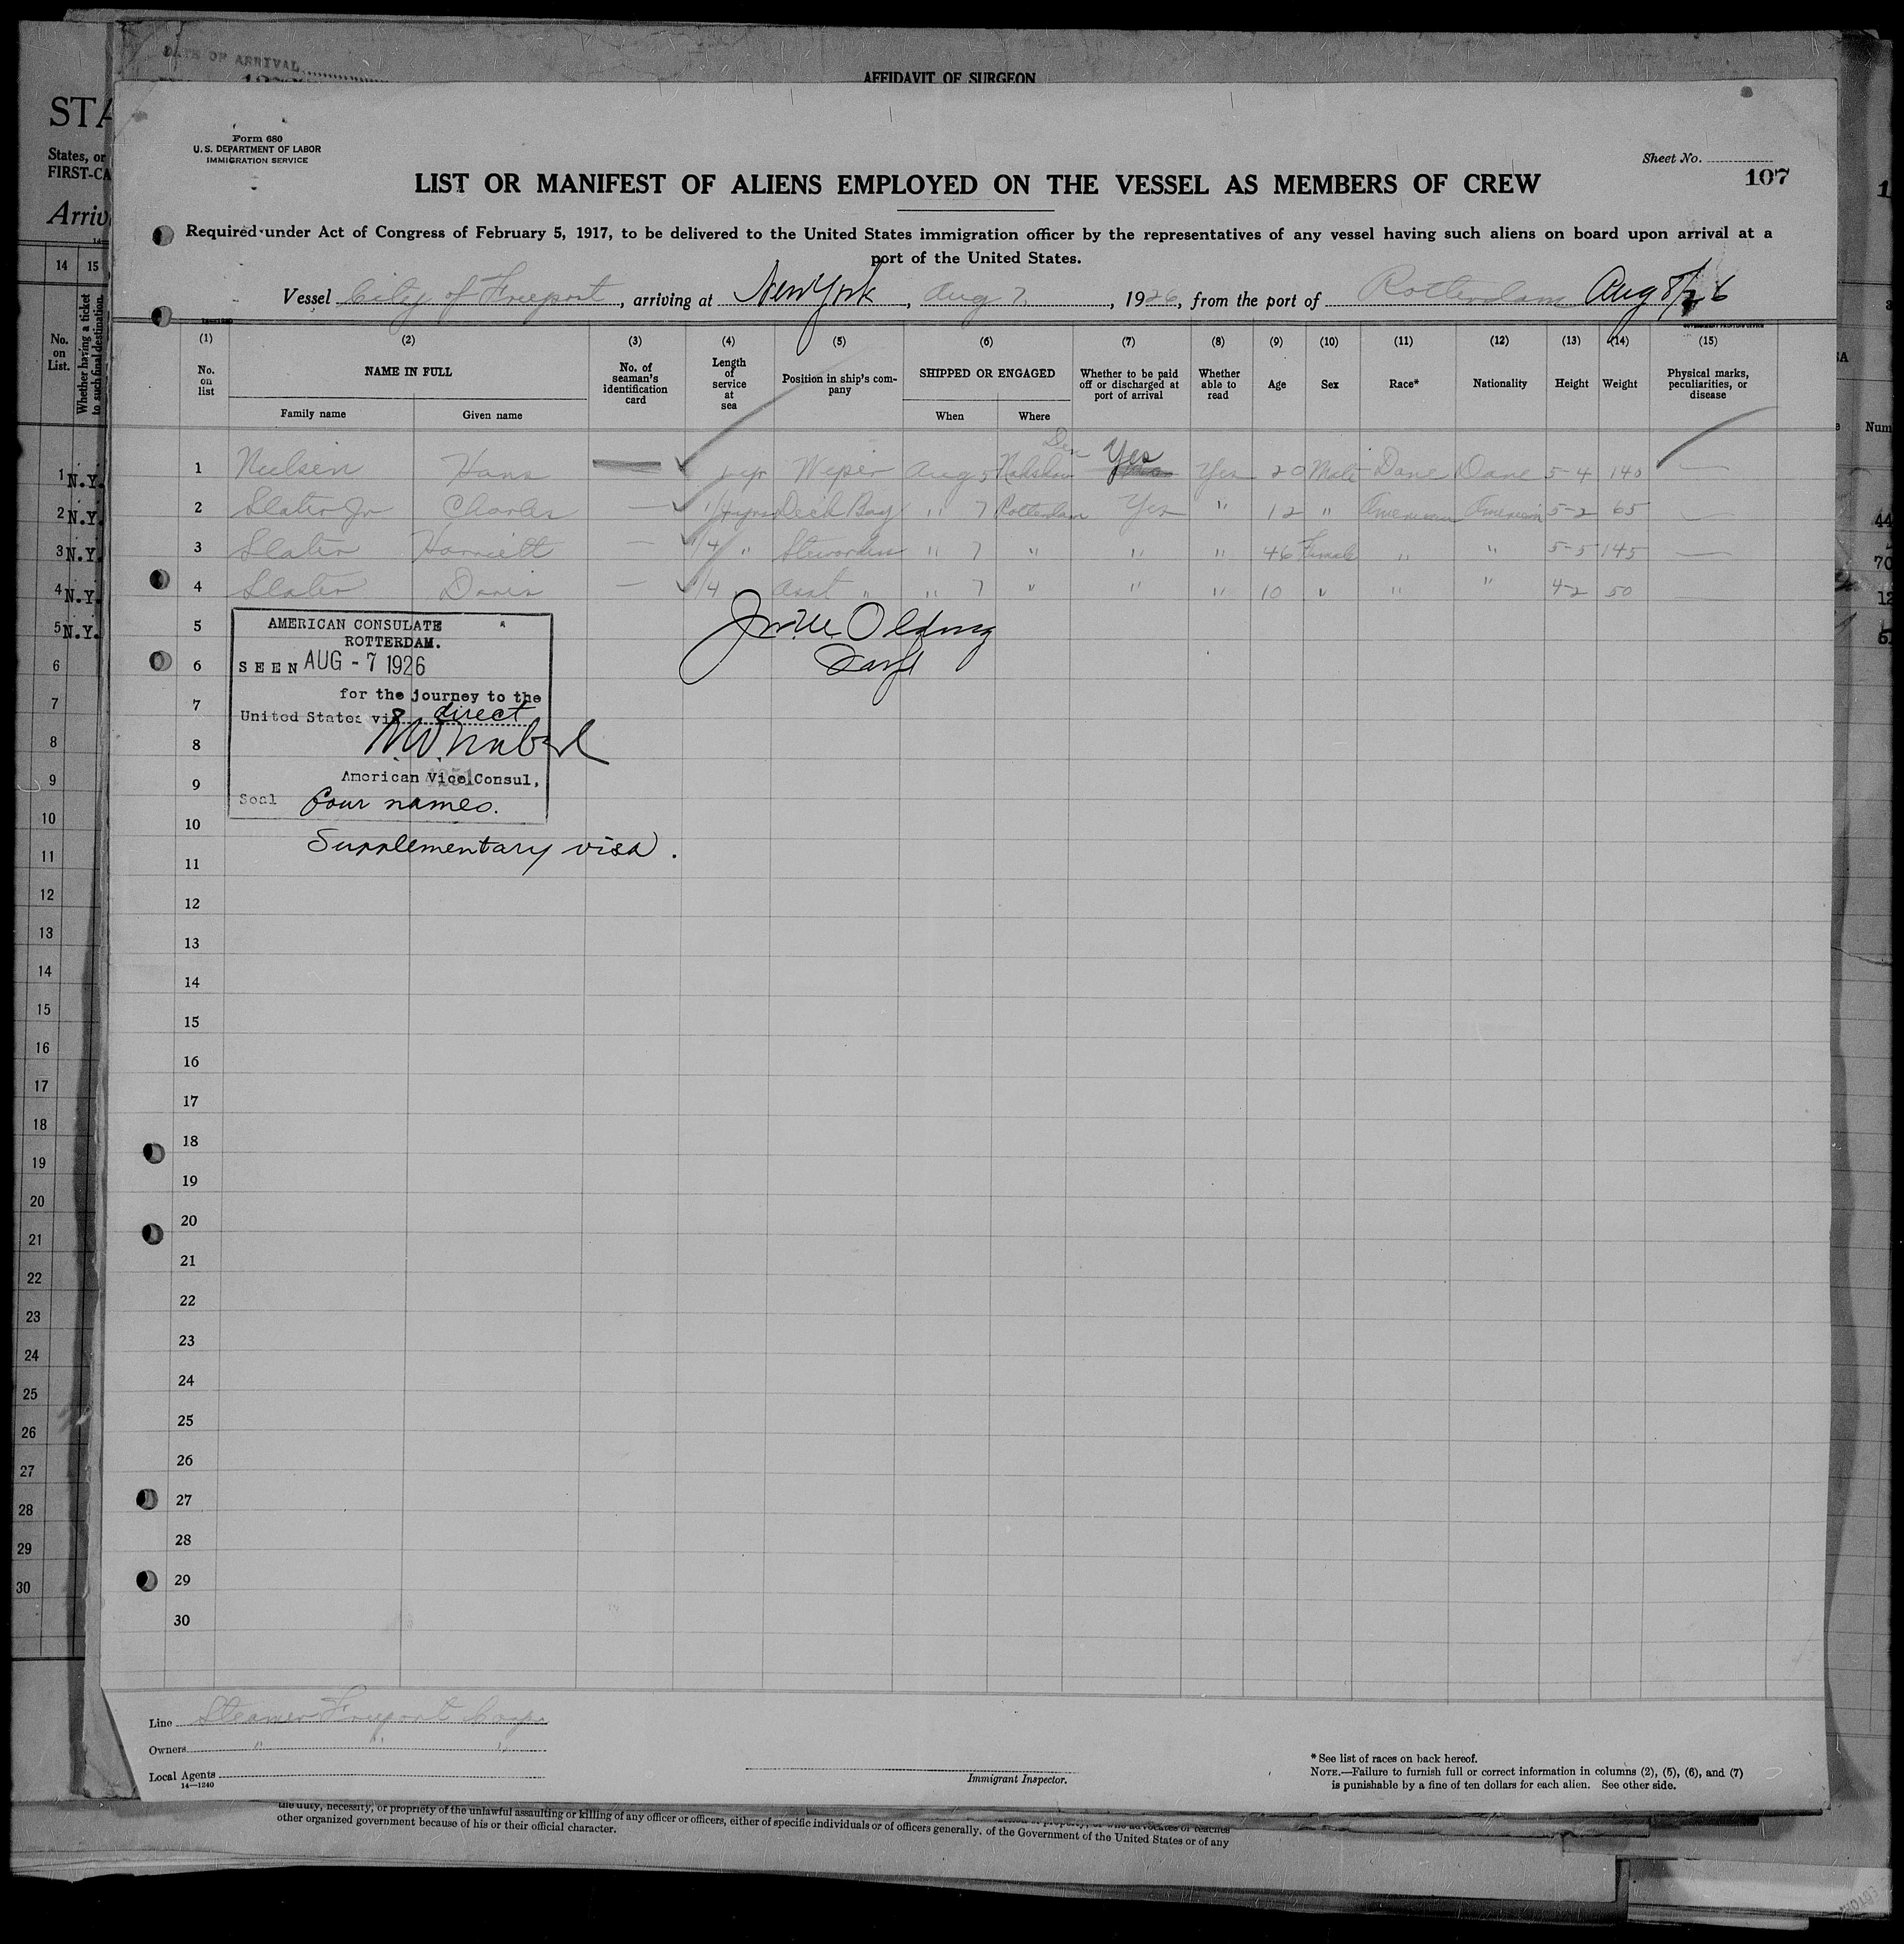 DATE OF ARRIVAL
AFFIDAVIT OF SURGEON
STA
States, or
FIRST-CA
Arriv
Form 680
U. S. DEPARTMENT OF LABOR
IMMIGRATION SERVICE
Sheet No.
107
LIST OR MANIFEST OF ALIENS EMPLOYED ON THE VESSEL AS MEMBERS OF CREW
Required under Act of Congress of February 5, 1917, to be delivered to the United States immigration officer by the representatives of any vessel having such aliens on board upon arrival at a
port of the United States.
Vessel City of Freeport, arriving at New York, Aug 7, 1926, from the port of Rotterdam Aug 8/26
(1) (2) (3) (4) (5) (6) (7) (8) (9) (10) (11) (12) (13) (14) (15)
No. on list NAME IN FULL No. of seaman's identification card Length of service at sea Position in ship's company SHIPPED OR ENGAGED Whether to be paid off or discharged at port of arrival Whether able to read Age Sex Race* Nationality Height Weight Physical marks, peculiarities, or disease
Family name Given name When Where
1 Nielsen Hans — 1 yr Wiper Aug 5 Den Yes Yes 20 Male Dane Dane 5-4 140 —
2 Slater Jr Charles — Deck Boy " 7 Rotterdam Yes " 12 " American American 5-2 65 —
3 Slater Harriett — 1/4 " Stewardess " 7 " " " 46 Female " " 5-5 145 —
4 Slater Doris — 1/4 Asst " " 7 " " " 10 " " " 4-2 50 —
5
6
7
8
9
10
11
12
13
14
15
16
17
18
19
20
21
22
23
24
25
26
27
28
29
30
AMERICAN CONSULATE
ROTTERDAM.
SEEN AUG - 7 1926
for the journey to the
United States via direct
American Vice Consul,
Seal Four names.
Supplementary visa.
Line Steamer Freeport Corp
Owners " " "
Local Agents
14—1240
Immigrant Inspector.
* See list of races on back hereof.
NOTE.—Failure to furnish full or correct information in columns (2), (5), (6), and (7)
is punishable by a fine of ten dollars for each alien. See other side.
14 15
No. on List.
Whether having a ticket to such final destination.
1 N.Y.
2 N.Y.
3 N.Y.
4 N.Y.
5 N.Y.
6
7
8
9
10
11
12
13
14
15
16
17
18
19
20
21
22
23
24
25
26
27
28
29
30
the duty, necessity, or propriety of the unlawful assaulting or killing of any officer or officers, either of specific individuals or of officers generally, of the Government of the United States or of any
other organized government because of his or their official character.